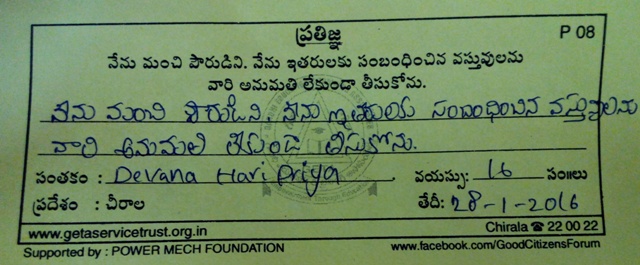 ప్రతిజ్ఞ
P 08
నేను మంచి పౌరుడిని. నేను ఇతరులకు సంబంధించిన వస్తువులను
వారి అనుమతి లేకుండా తీసుకోను.
నేను మంచి పౌరుడిని. నేను ఇతరులకు సంబంధించిన వస్తువులను
వారి అనుమతి లేకుండ తీసుకోను.
సంతకం : Devana Hari Priya వయస్సు: 16 సం॥లు
ప్రదేశం : చీరాల తేదీ: 28-1-2016
www.getaservicetrust.org.in Chirala ☎ 22 00 22
Supported by : POWER MECH FOUNDATION www.facebook.com/GoodCitizensForum